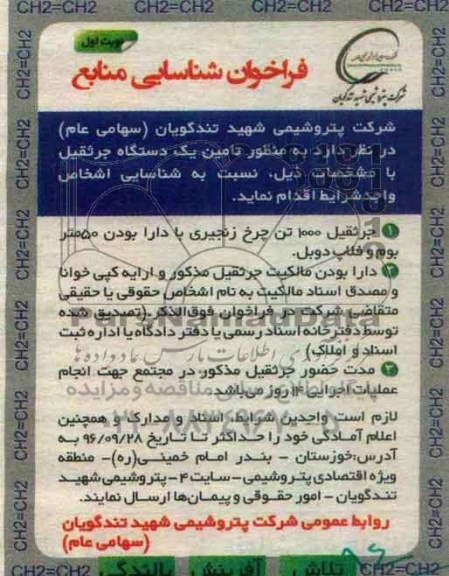 CH2=CH2 CH2=CH2 CH2=CH2 CH2=CH2
نوبت اول
فراخوان شناسایی منابع
شرکت پتروشیمی شهید تندگویان
شرکت پتروشیمی شهید تندگویان (سهامی عام)
در نظر دارد به منظور تامین یک دستگاه جرثقیل
با مشخصات ذیل، نسبت به شناسایی اشخاص
واجدشرایط اقدام نماید.
۱ جرثقیل ۱۰۰۰ تن چرخ زنجیری با دارا بودن ۵۰متر
بوم و قلاب دوبل.
۲ دارا بودن مالکیت جرثقیل مذکور و ارایه کپی خوانا
و مصدق اسناد مالکیت به نام اشخاص حقوقی یا حقیقی
متقاضی شرکت در فراخوان فوق‌الذکر.(تصدیق شده
توسط دفترخانه اسناد رسمی یا دفتر دادگاه یا اداره ثبت
اسناد و املاک)
۳ مدت حضور جرثقیل مذکور در مجتمع جهت انجام
عملیات اجرایی ۱۴ روز می‌باشد.
لازم است واجدین شرایط، اسناد و مدارک و همچنین
اعلام آمادگی خود را حداکثر تا تاریخ ۹۶/۰۹/۲۸ به
آدرس:خوزستان - بندر امام خمینی(ره)- منطقه
ویژه اقتصادی پتروشیمی - سایت ۴ - پتروشیمی شهید
تندگویان - امور حقوقی و پیمان‌ها ارسال نمایند.
روابط عمومی شرکت پتروشیمی شهید تندگویان
(سهامی عام)
CH2=CH2 تلاش آفرینش بالندگی CH2=CH2